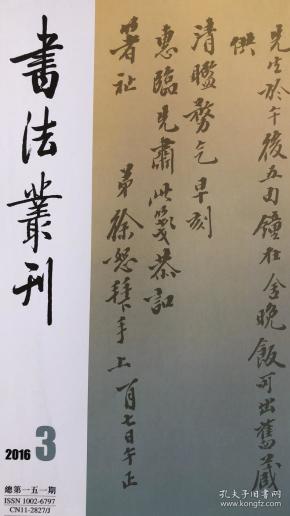 書法叢刊
2016 3
總第一五一期
ISSN 1002-6797
CN11-2827/J
先生於午後五句鐘在舍晚飯可出舊藏
供
清鑒務乞早刻
惠臨是肅此敬恭訊
箸祉
弟徐恕頓首上 一月七日午正
孔夫子旧书网